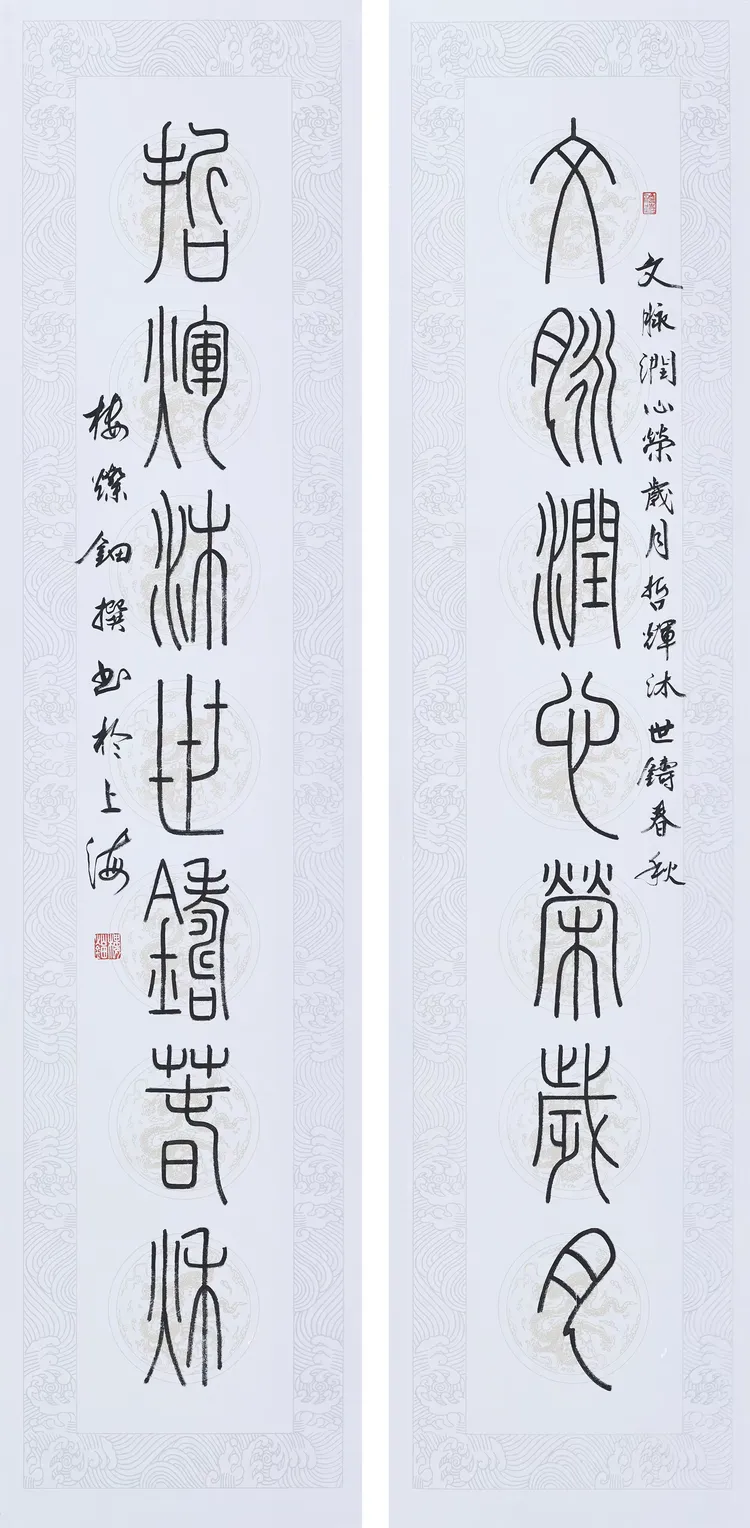 文脉潤心榮歲月
文脉潤心榮歲月哲輝沐世鑄春秋
哲煇沐世鑄春秌
梅燦鈿撰书於上海